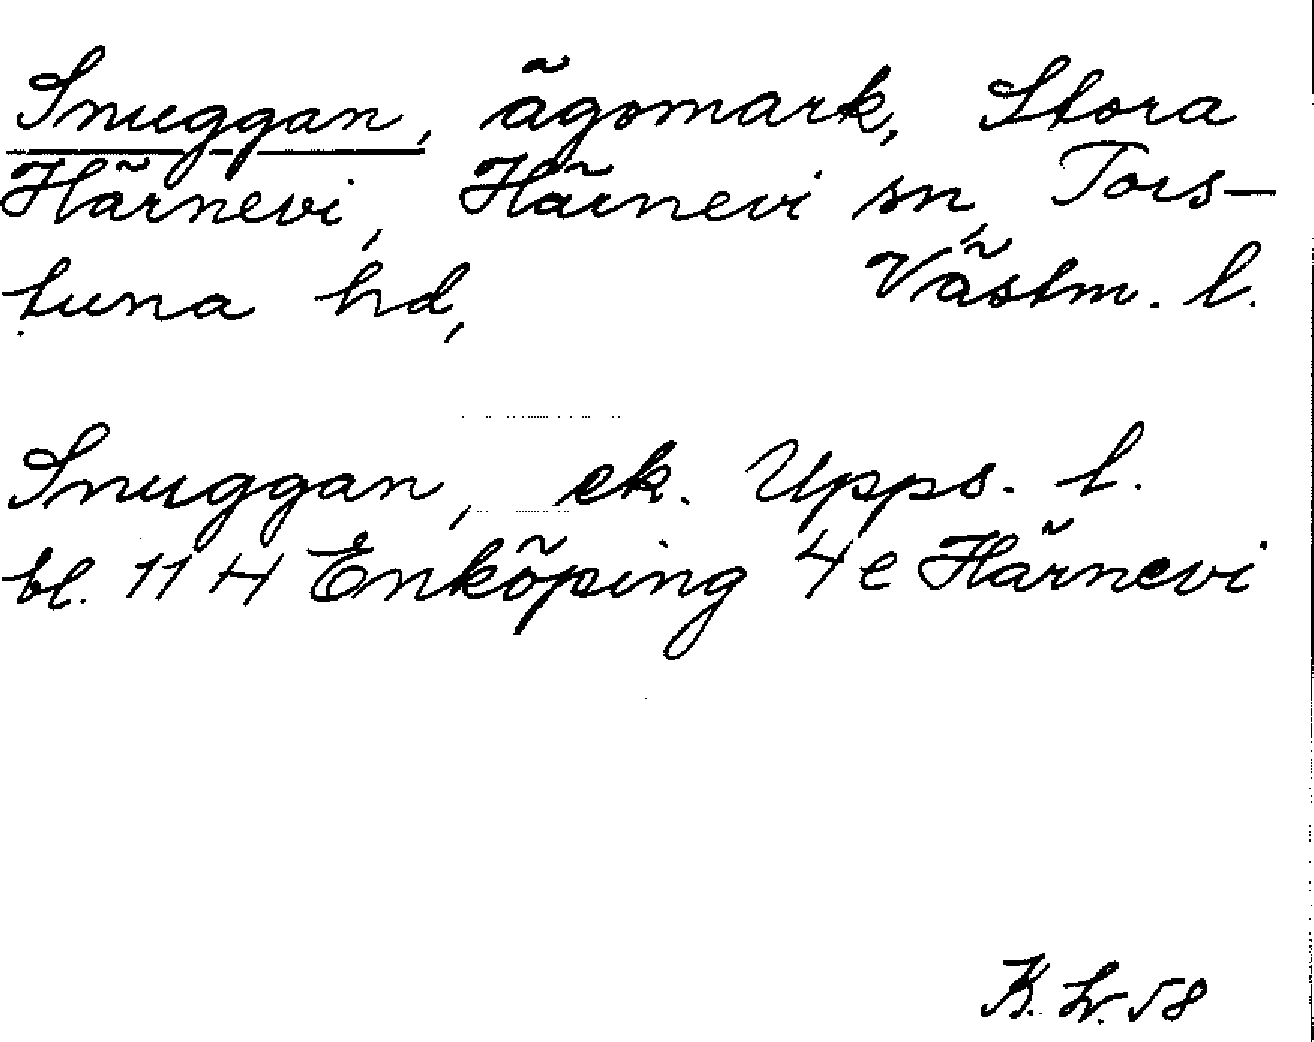 Snuggan, ägomark, Stora
Härnevi, Härnevi sn, Tors-
tuna hd, Västm. l.
Snuggan, ek. Upps. l.
bl. 114 Enköping 4e Härnevi